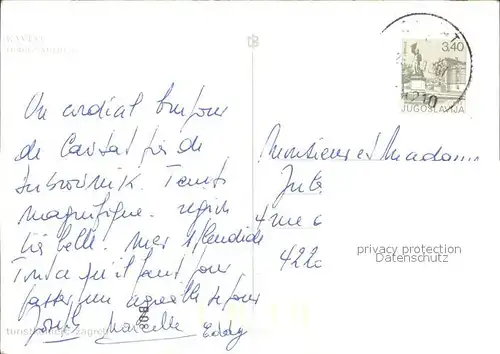 CAVTAT
3,40
JUGOSLAVIJA
Un cordial bonjour
de Cavtat près de
Dubrovnik. Temps
magnifique. région
très belle. mer splendide
Tout ce qu'il faut pour
passer un agréable séjour
Joseph Marcelle Eddy
Monsieur et Madame
4 rue
422
privacy protection
Datenschutz
turistkomerc zagreb